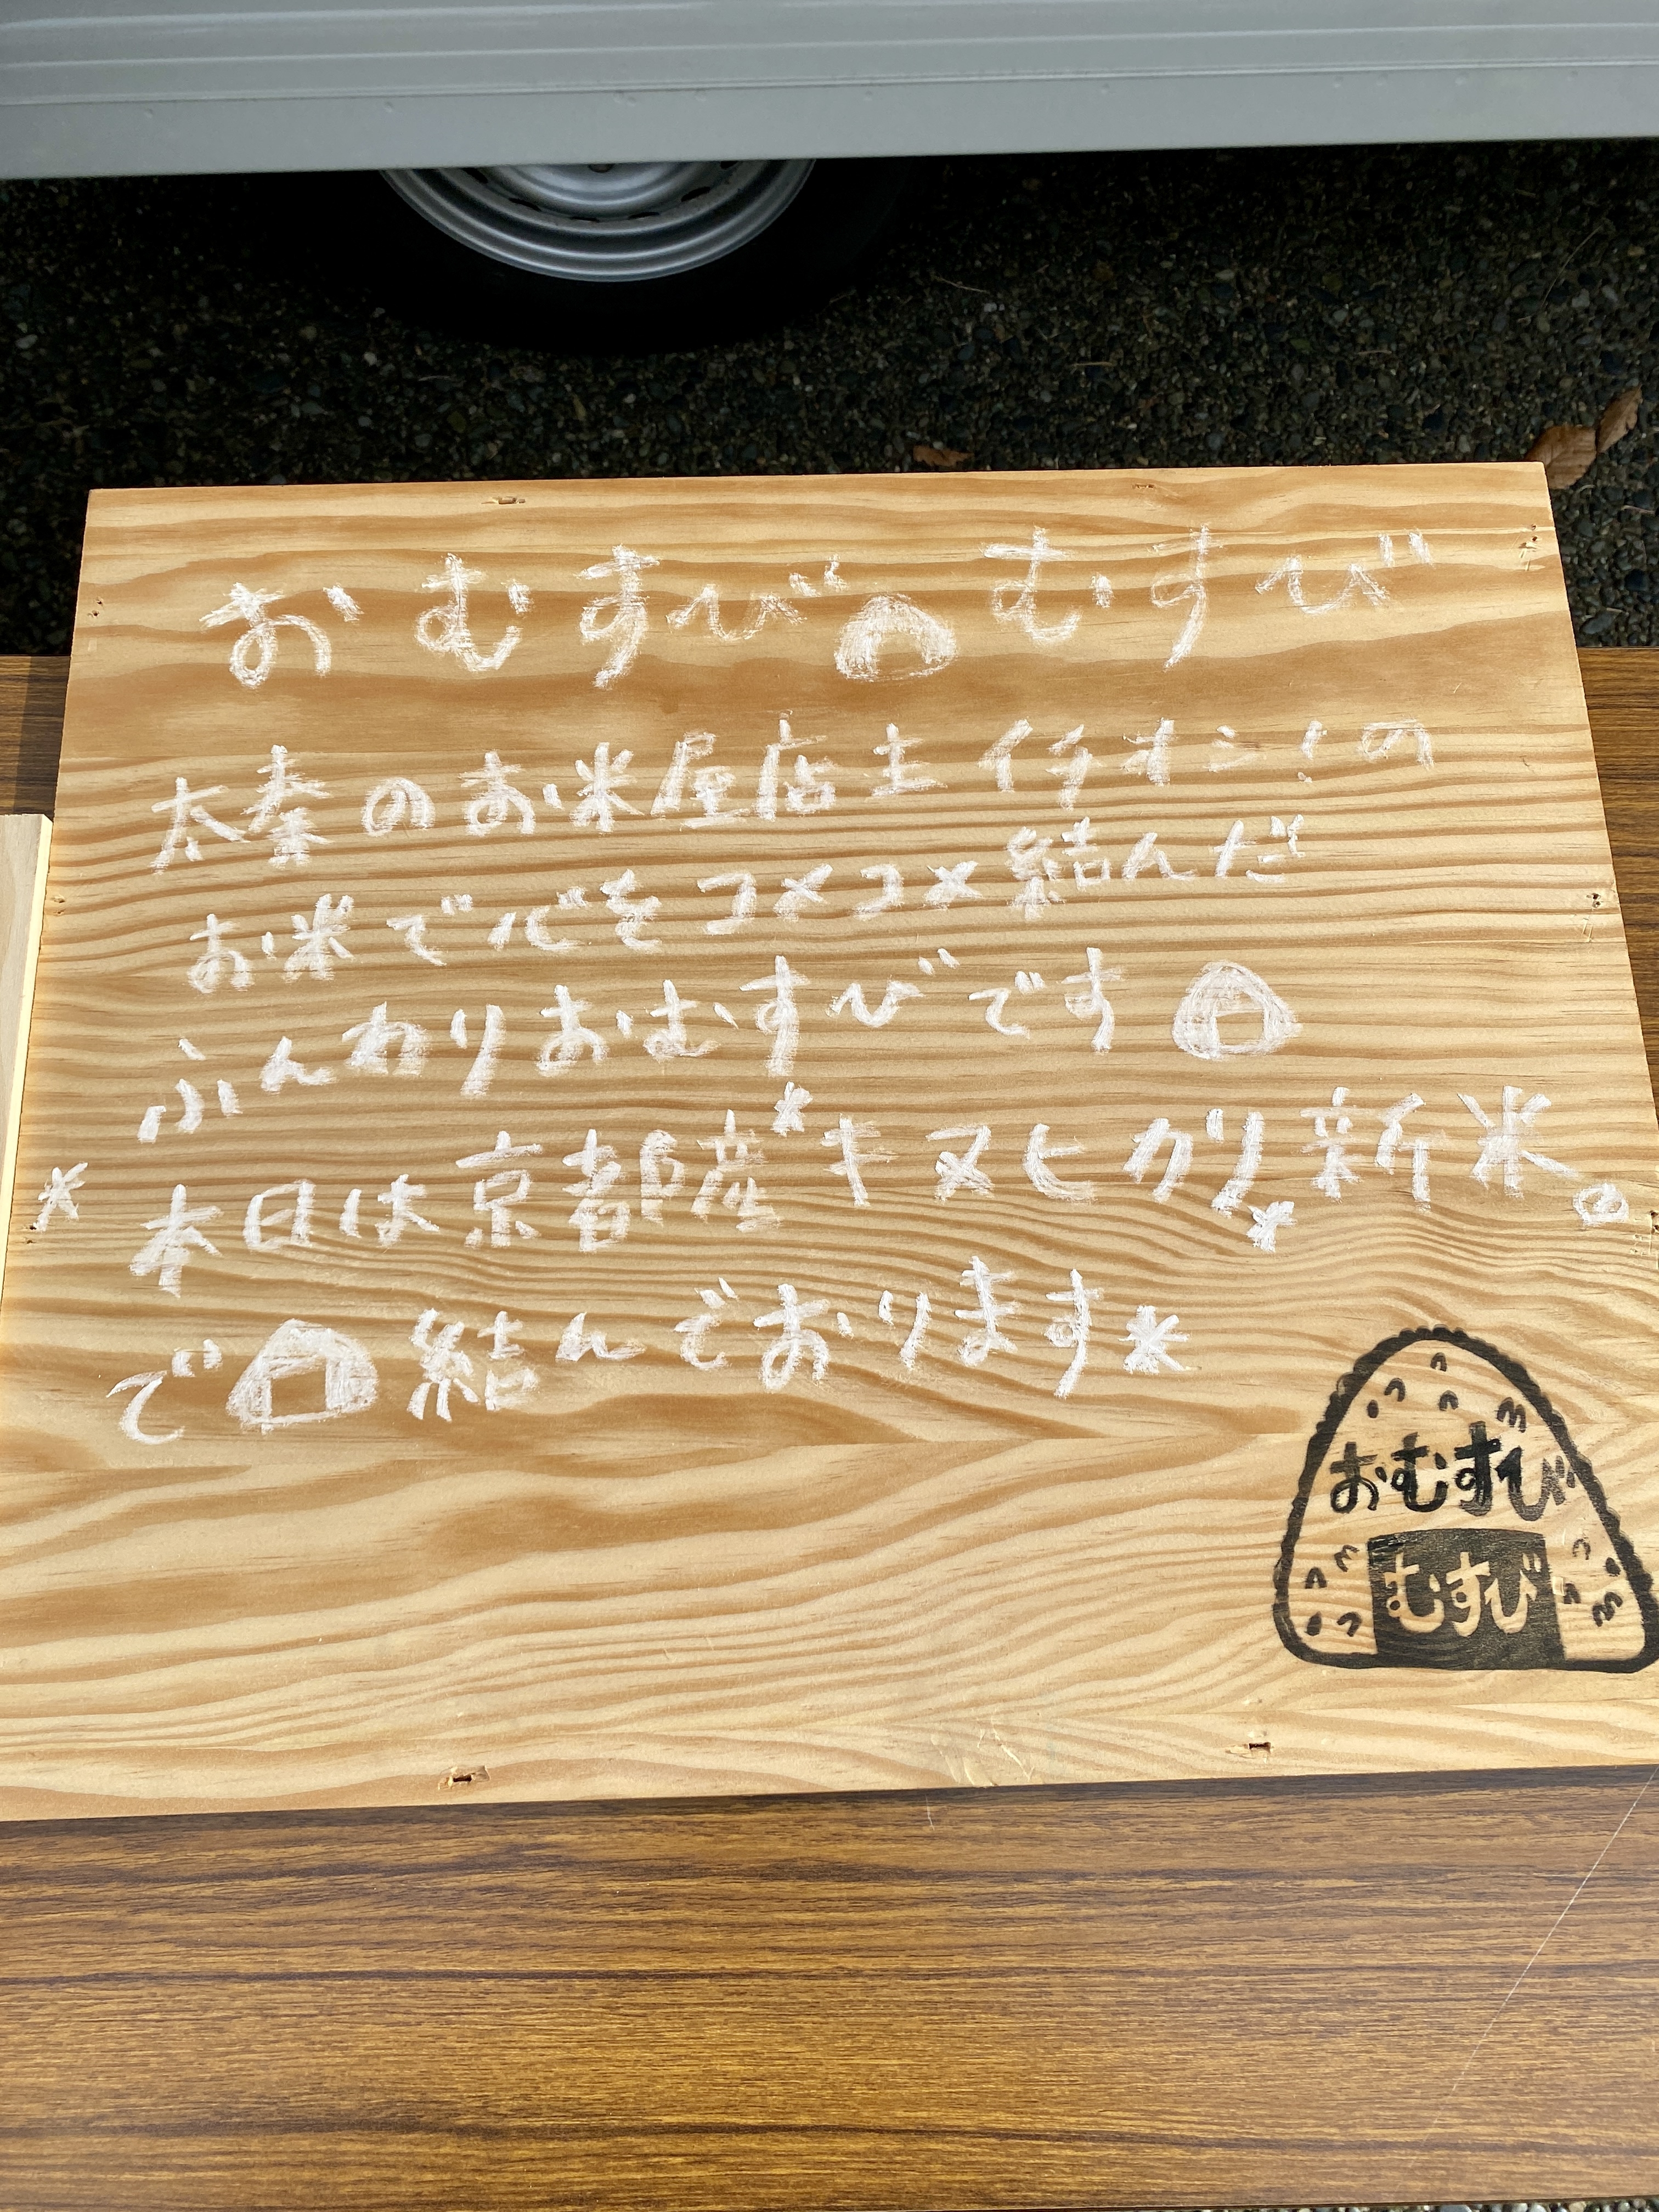 おむすび むすび
太秦のお米屋店主イチオシ!の
お米で心をコメコメ結んだ
ふんわりおむすびです
*本日は京都産*キヌヒカリ*新米。
で 結んでおります*
おむすび
むすび